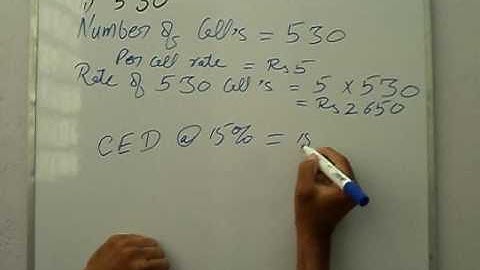 1) 530
Number of Call's = 530
Per call rate = Rs 5
Rate of 530 Call's = 5 × 530
= Rs 2650
CED @ 15% = 15